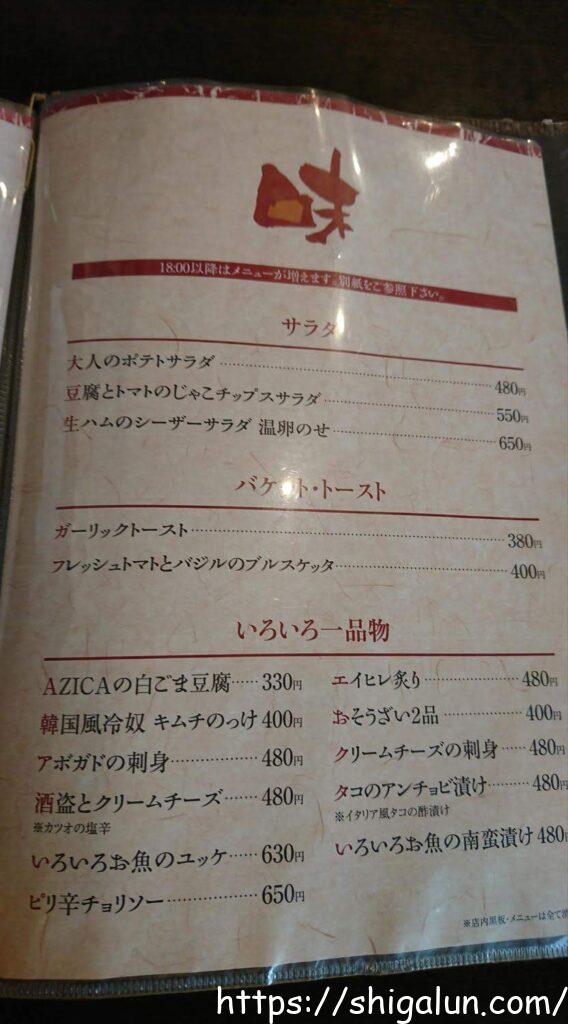 味
18:00以降はメニューが増えます。別紙をご参照下さい。
サラダ
大人のポテトサラダ 480円
豆腐とトマトのじゃこチップスサラダ 550円
生ハムのシーザーサラダ 温卵のせ 650円
バケット・トースト
ガーリックトースト 380円
フレッシュトマトとバジルのブルスケッタ 400円
いろいろ一品物
AZICAの白ごま豆腐 330円
韓国風冷奴 キムチのっけ 400円
アボガドの刺身 480円
酒盗とクリームチーズ 480円
※カツオの塩辛
いろいろお魚のユッケ 630円
ピリ辛チョリソー 650円
エイヒレ炙り 480円
おそうざい2品 400円
クリームチーズの刺身 480円
タコのアンチョビ漬け 480円
※イタリア風タコの酢漬け
いろいろお魚の南蛮漬け 480円
※店内黒板・メニューは全て
https://shigalun.com/